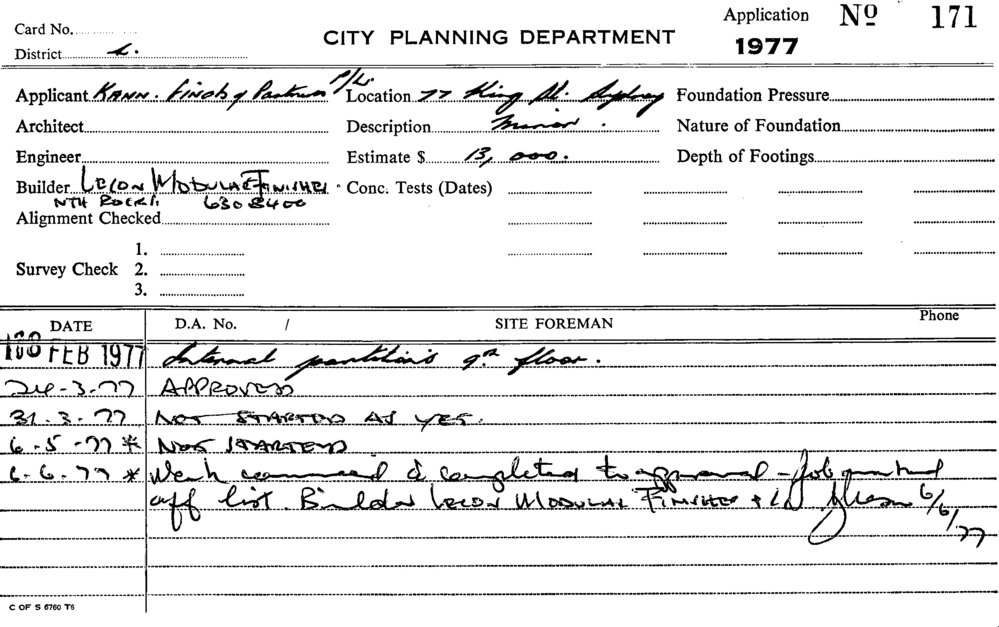 Card No.
District L.
CITY PLANNING DEPARTMENT
Application Nº 171
1977
Applicant KANN. FINCH & Partners P/L. Location 77 King St. Sydney Foundation Pressure
Architect Description Minor. Nature of Foundation
Engineer Estimate $ 13,000. Depth of Footings
Builder LECON MODULAR FINISHES Conc. Tests (Dates)
NTH ROCKS. 630 8400
Alignment Checked
1.
Survey Check 2.
3.
DATE D.A. No. / SITE FOREMAN Phone
FEB 1977 Internal partitions floor.
24-3-77 APPROVED
31.3.77 NOT STARTED AS YET.
6-5-77 * NOT STARTED
6-6-77 * Work commenced & completed to approval - Job marked
off list. Builder LECON MODULAR FINISHES P/L 6/6/77
C OF S 6760 T6